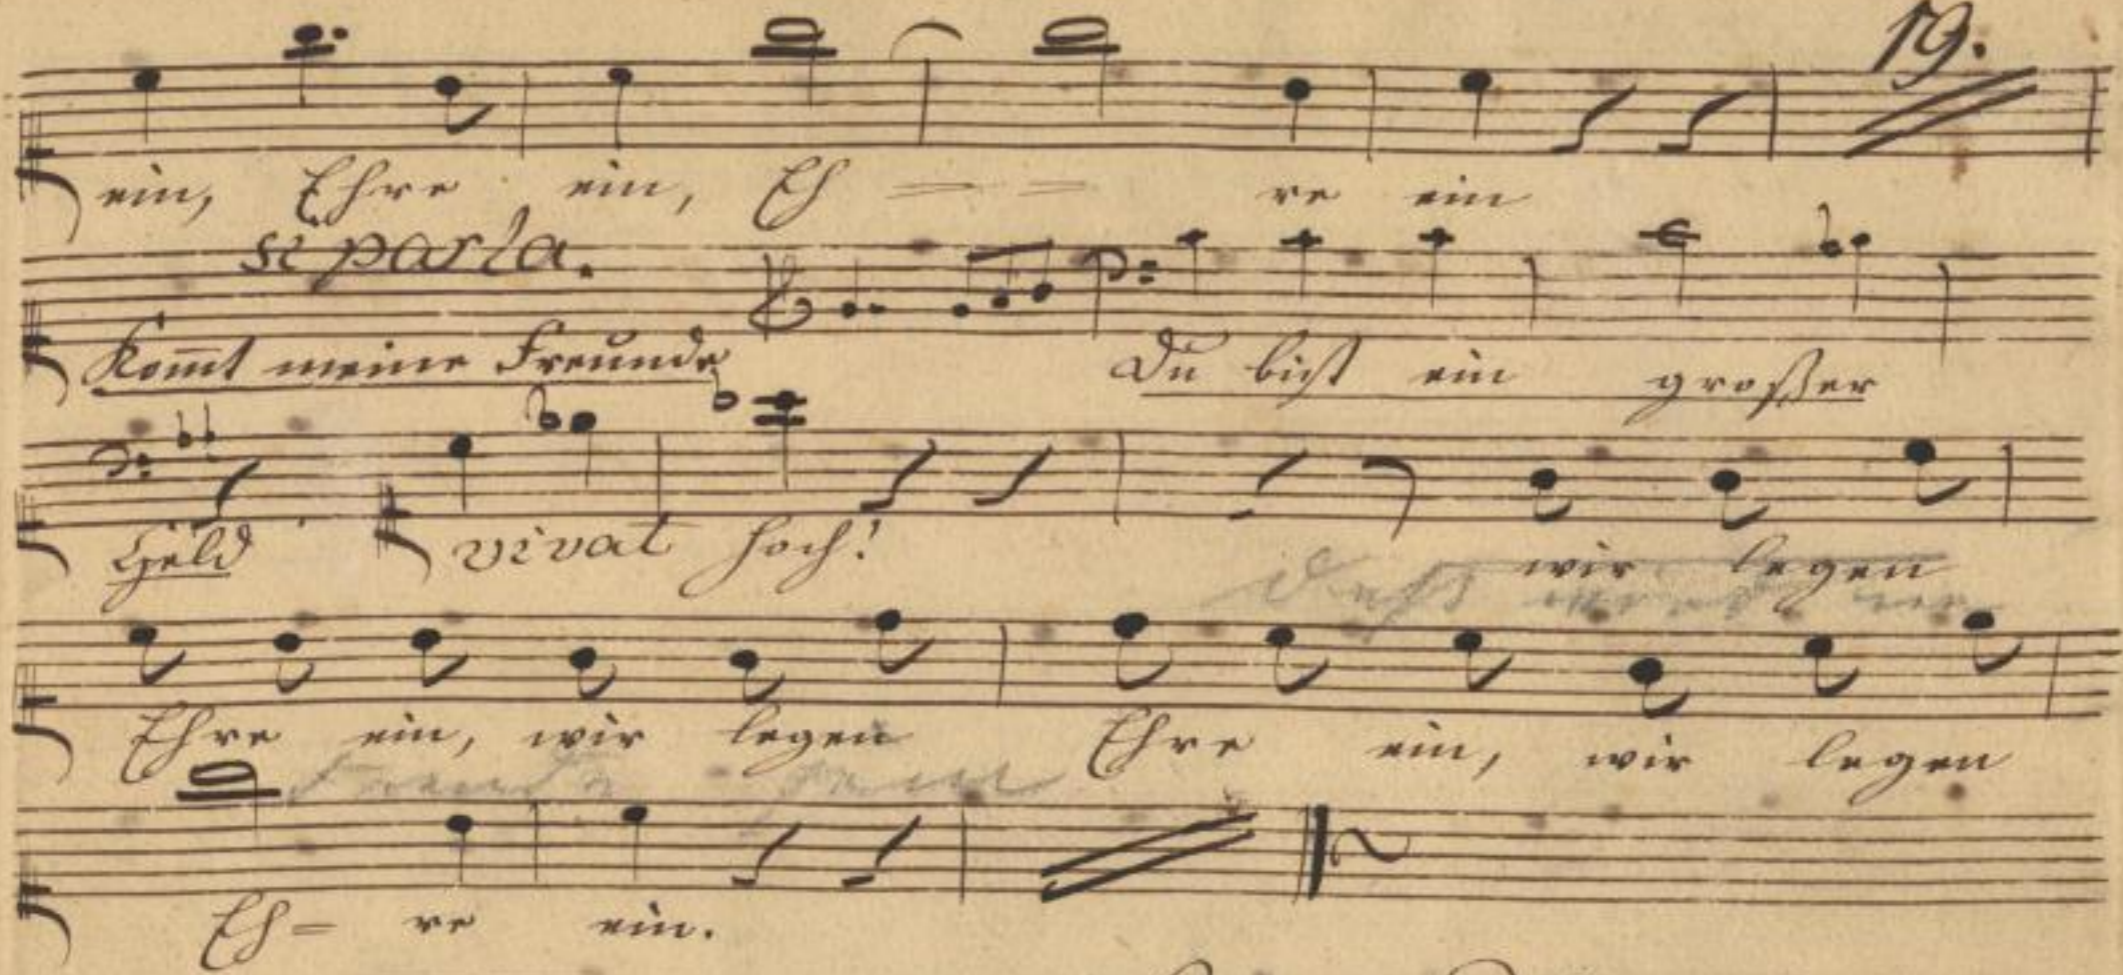 19.
ein, Ehre ein, Eh = = re ein
si parla.
Kom̄t meine Freunde Du bist ein großer
Held vivat hoch! wir legen
Ehre ein, wir legen Ehre ein, wir legen
Eh = re ein.